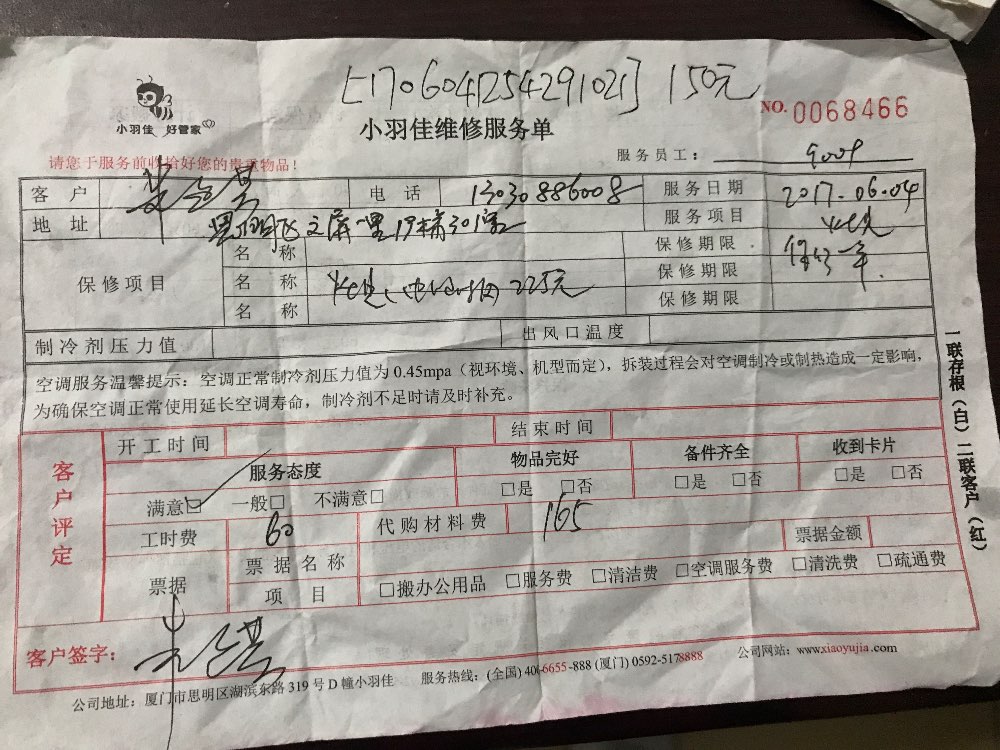 [1706041254291021] 150元
小羽佳 好管家
小羽佳维修服务单
NO. 0068466
请您于服务前收拾好您的贵重物品！
服务员工： 9009
客户 电话 13030886008 服务日期 2017.06.04
地址 思明区文屏 301室 服务项目
保修项目
名称 保修期限 一年
名称 225元 保修期限
名称 保修期限
制冷剂压力值 出风口温度
空调服务温馨提示：空调正常制冷剂压力值为 0.45mpa（视环境、机型而定），拆装过程会对空调制冷或制热造成一定影响，
为确保空调正常使用延长空调寿命，制冷剂不足时请及时补充。
客户评定
开工时间 结束时间
服务态度 物品完好 备件齐全 收到卡片
满意☑ 一般□ 不满意□ □是 □否 □是 □否 □是 □否
工时费 60 代购材料费 165 票据金额
票据
票据名称
项目 □搬办公用品 □服务费 □清洁费 □空调服务费 □清洗费 □疏通费
客户签字：
公司地址：厦门市思明区湖滨东路 319 号 D 幢小羽佳 服务热线：(全国) 400-6655-888 (厦门) 0592-5178888 公司网站：www.xiaoyujia.com
一联存根（白）二联客户（红）